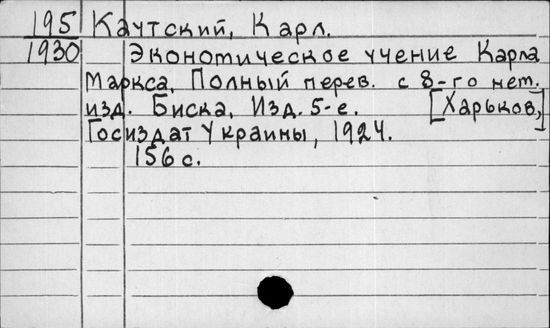 195 Каутский, Карл.
1930 Экономическое учение Карла
Маркса. Полный перев. с 8-го нем.
изд. Биска. Изд. 5-е. [Харьков,]
Госиздат Украины, 1924.
156 с.